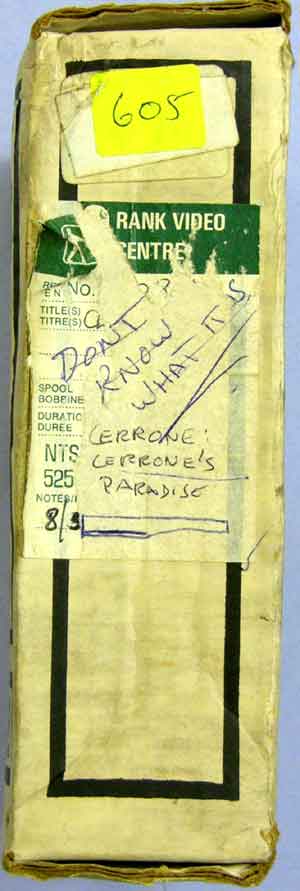 605
RANK VIDEO
CENTRE
NO.
TITLE(S)
TITRE(S)
DON'T
KNOW
WHAT IT IS
SPOOL
BOBBINE
DURATIO
DUREE
CERRONE:
CERRONE'S
PARADISE
NTS
525
NOTES/
8/3